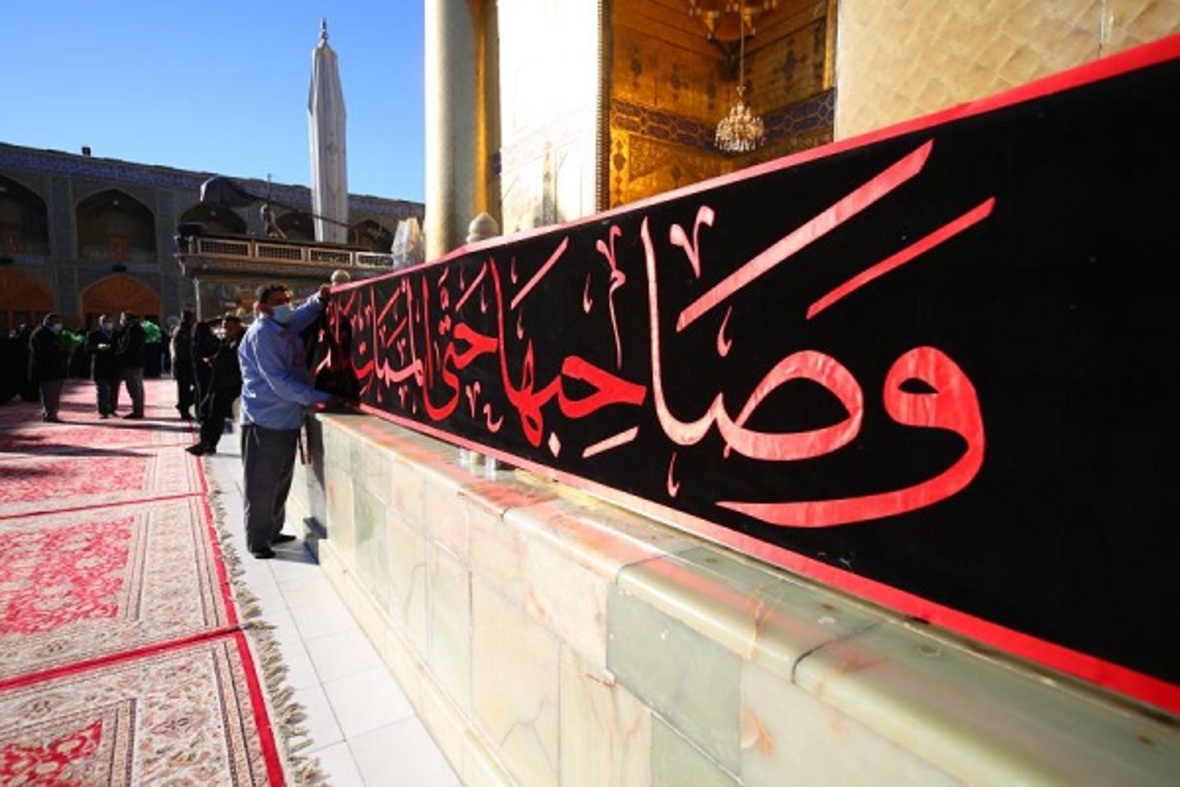 وَصَاحِبُهَا حَتَّى المَمَاتِ